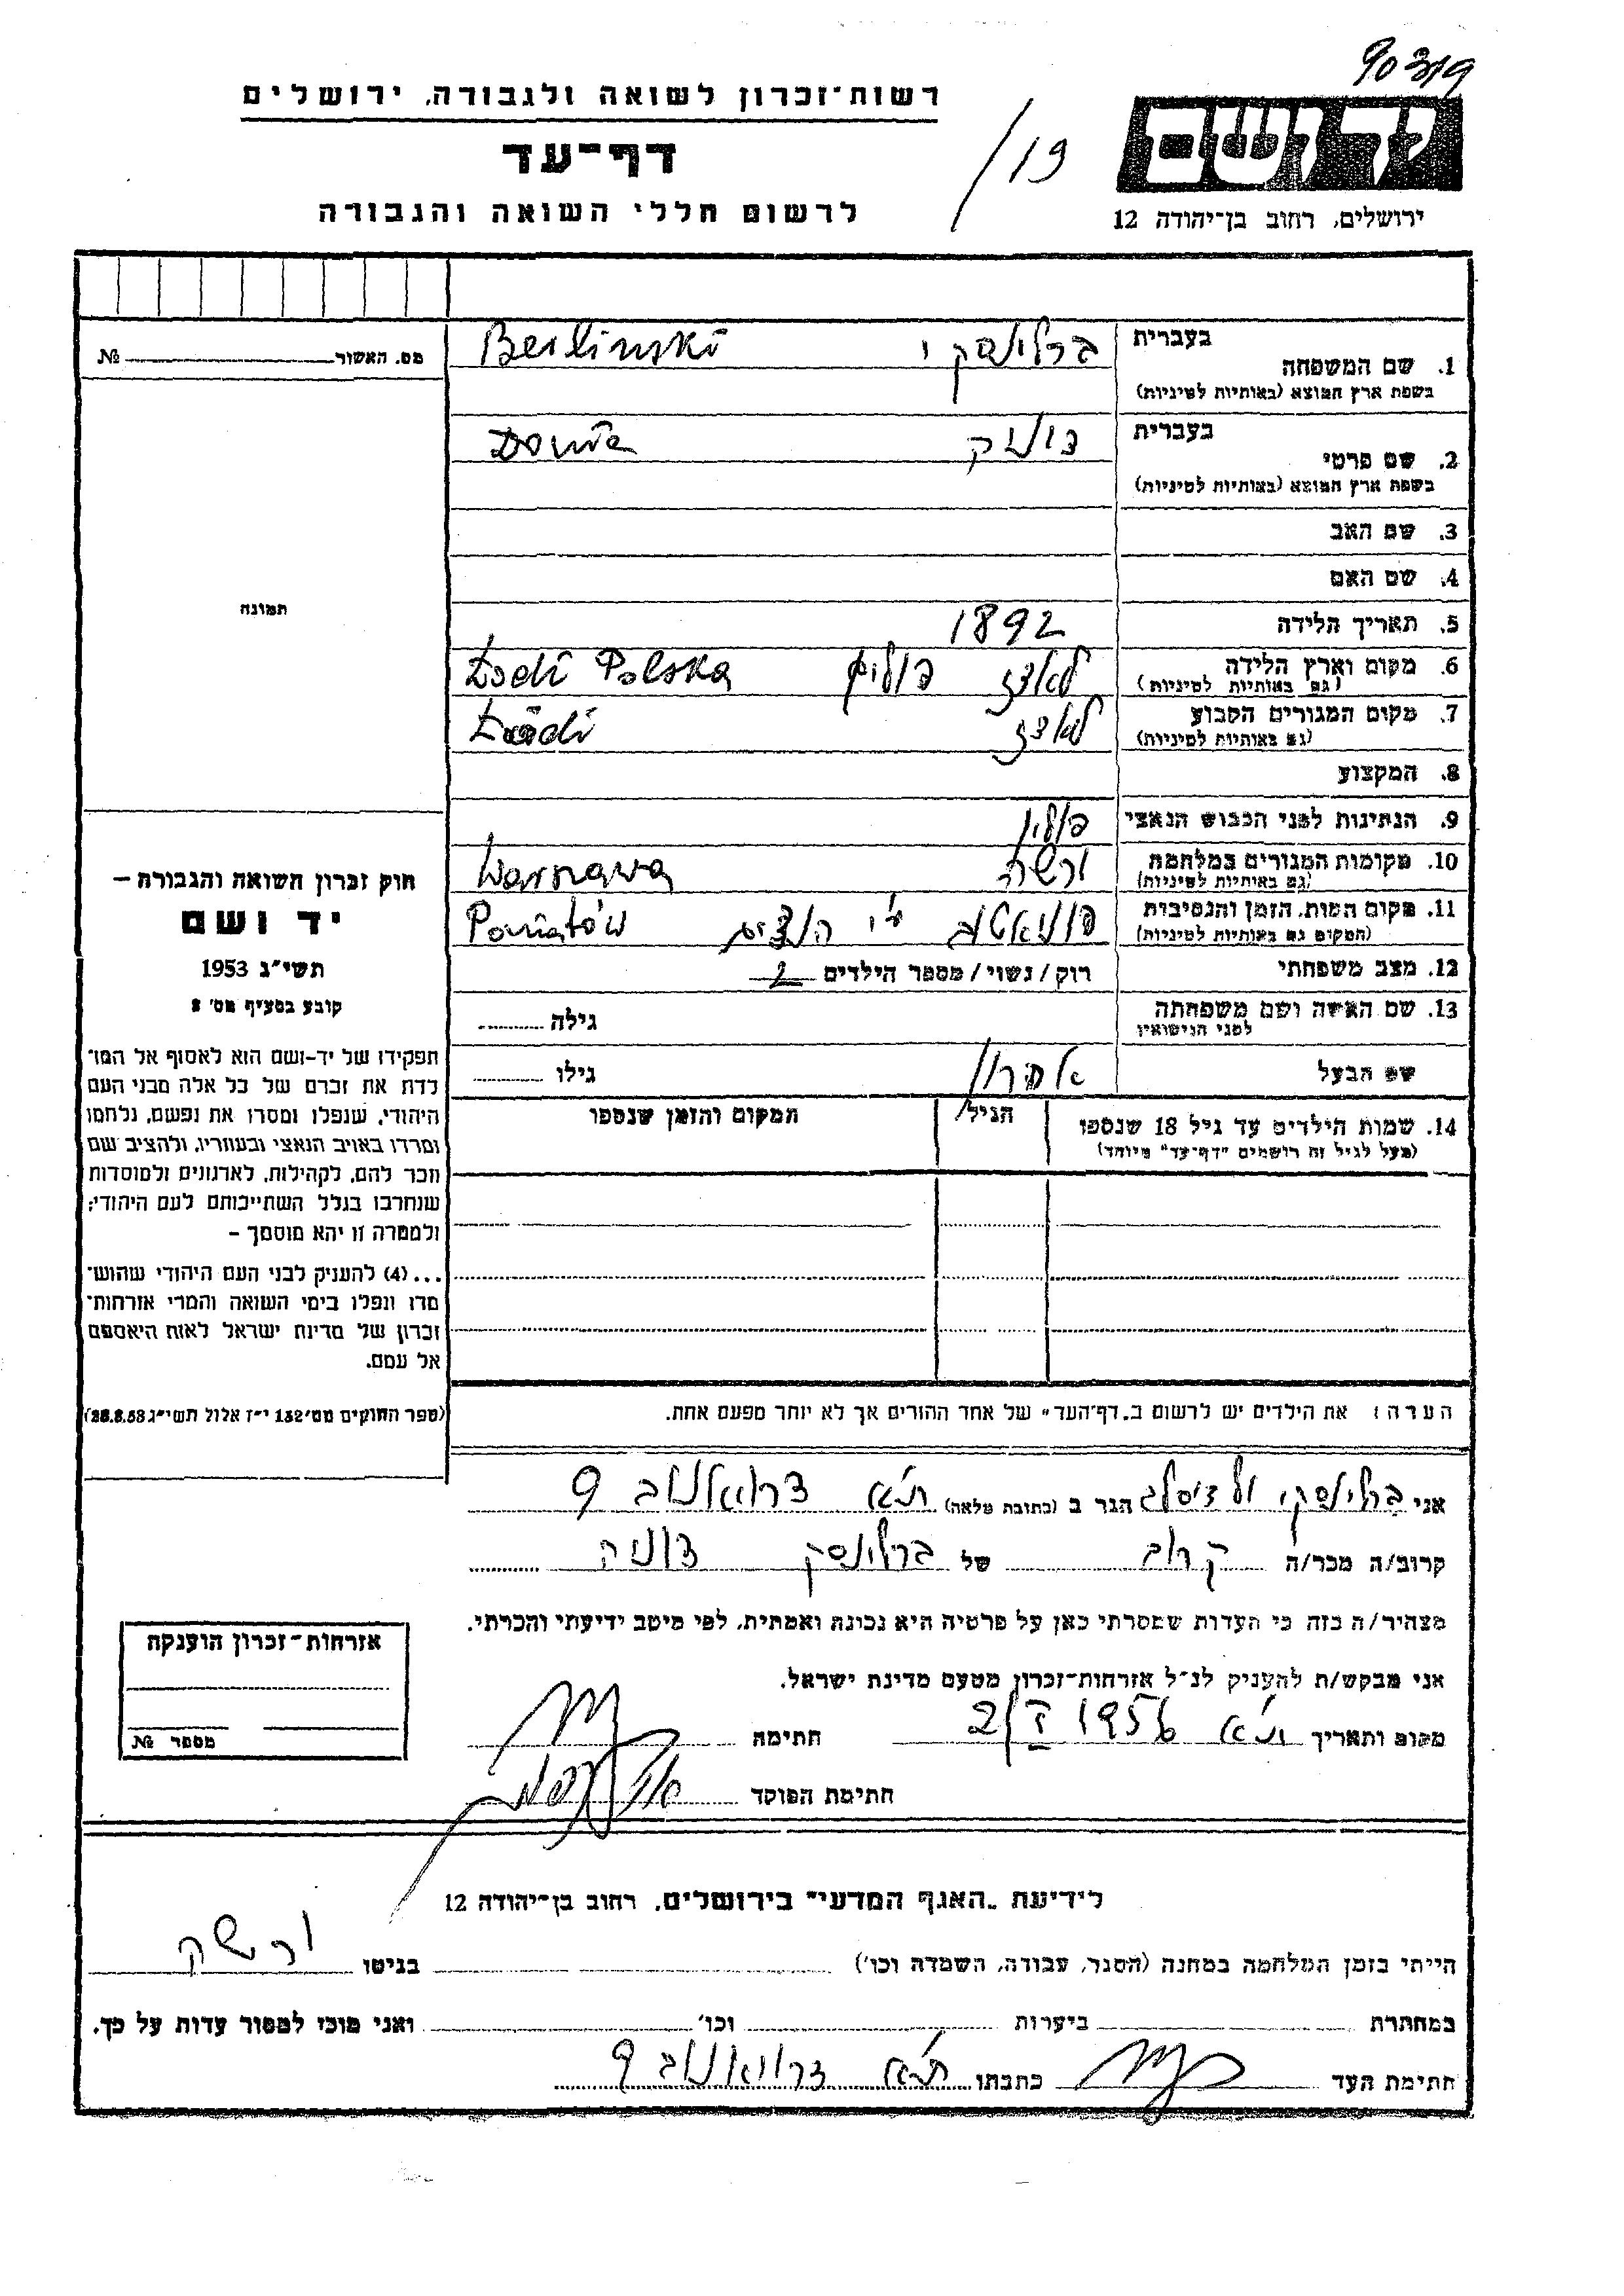 90319
רשות־זכרון לשואה ולגבורה, ירושלים
דף־עד
לרשום חללי השואה והגבורה
/19
יד ושם
ירושלים, רחוב בן־יהודה 12
מס. האשור № 
תמונה
בעברית ברלינסקי Berlinski
1. שם המשפחה
בשפת ארץ המוצא (באותיות לטיניות)
בעברית דוניה Donia
2. שם פרטי
בשפת ארץ המוצא (באותיות לטיניות)
3. שם האב
4. שם האם
5. תאריך הלידה 1892
6. מקום וארץ הלידה לאדז פולין Łodź Polska
(גם באותיות לטיניות)
7. מקום המגורים הקבוע לאדז Łódź
(גם באותיות לטיניות)
8. המקצוע
9. הנתינות לפני הכבוש הנאצי פולין
10. מקומות המגורים במלחמה ורשה Warszawa
(גם באותיות לטיניות)
11. מקום המות, הזמן והנסיבות פוניאטוב ע״י הנצים Poniatów
(המקום גם באותיות לטיניות)
12. מצב משפחתי רוק/נשוי/מספר הילדים 2
13. שם האשה ושם משפחתה גילה
לפני הנישואין
שם הבעל אהרון גילו
14. שמות הילדים עד גיל 18 שנספו הגיל המקום והזמן שנספו
(מעל לגיל זה רושמים "דף־עד" מיוחד)
הערה: את הילדים יש לרשום ב„דף־העד" של אחד ההורים אך לא יותר מפעם אחת.
חוק זכרון השואה והגבורה –
יד ושם
תשי"ג 1953
קובע בסעיף מס' 2
תפקידו של יד-ושם הוא לאסוף אל המו־
לדת את זכרם של כל אלה מבני העם
היהודי, שנפלו ומסרו את נפשם, נלחמו
ומרדו באויב הנאצי ובעוזריו, ולהציב שם
וזכר להם, לקהילות, לארגונים ולמוסדות
שנחרבו בגלל השתייכותם לעם היהודי;
ולמטרה זו יהא מוסמך –
...(4) להעניק לבני העם היהודי שהוש־
מדו ונפלו בימי השואה והמרי אזרחות־
זכרון של מדינת ישראל לאות היאספם
אל עמם.
(ספר החוקים מס' 132 י"ז אלול תשי"ג 28.8.53)
אני ברלינסקי ולדיסלב הגר ב (כתובת מלאה) ת״א דרויאנוב 9
קרוב/ה מכר/ה קרוב של ברלינסקי דוניה
מצהיר/ה בזה כי העדות שמסרתי כאן על פרטיה היא נכונה ואמתית, לפי מיטב ידיעתי והכרתי.
אני מבקש/ת להעניק לנ״ל אזרחות־זכרון מטעם מדינת ישראל.
מקום ותאריך ת״א 1956 חתימה
חתימת הפוקד
אזרחות־זכרון הוענקה
מספר №
לידיעת „האגף המדעי" בירושלים, רחוב בן־יהודה 12
הייתי בזמן המלחמה במחנה (הסגר, עבודה, השמדה וכו') בגיטו ורשה
במחתרת ביערות וכו' ואני מוכן למסור עדות על כך.
חתימת העד כתבתו ת״א דרויאנוב 9